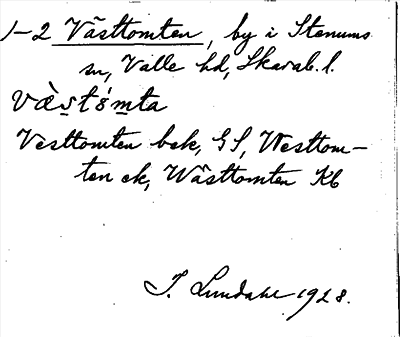 1-2 Västtomten, by i Stenums
sn, Valle hd, Skarab. l.
væ̀st$ómta
Vesttomten bek, GS, Westtom-
ten ek, Wästtomten Kb
I. Lundahl 1928.